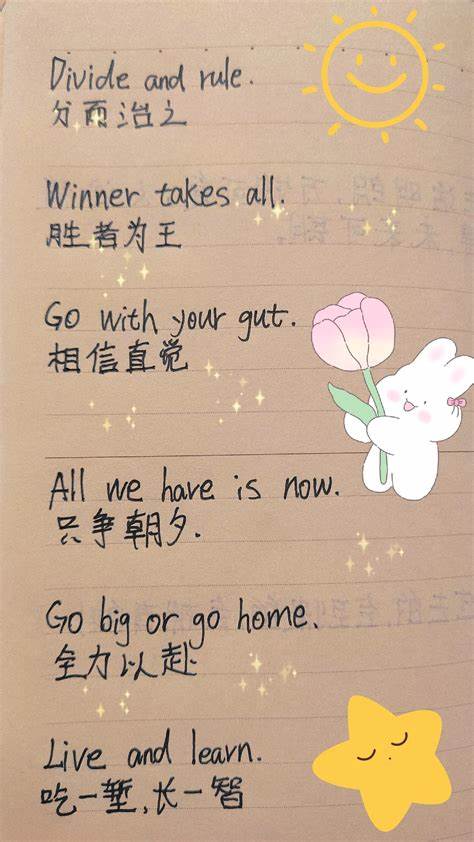 Divide and rule.
分而治之
Winner takes all.
胜者为王
Go with your gut.
相信直觉
All we have is now.
只争朝夕.
Go big or go home.
全力以赴
Live and learn.
吃一堑,长一智